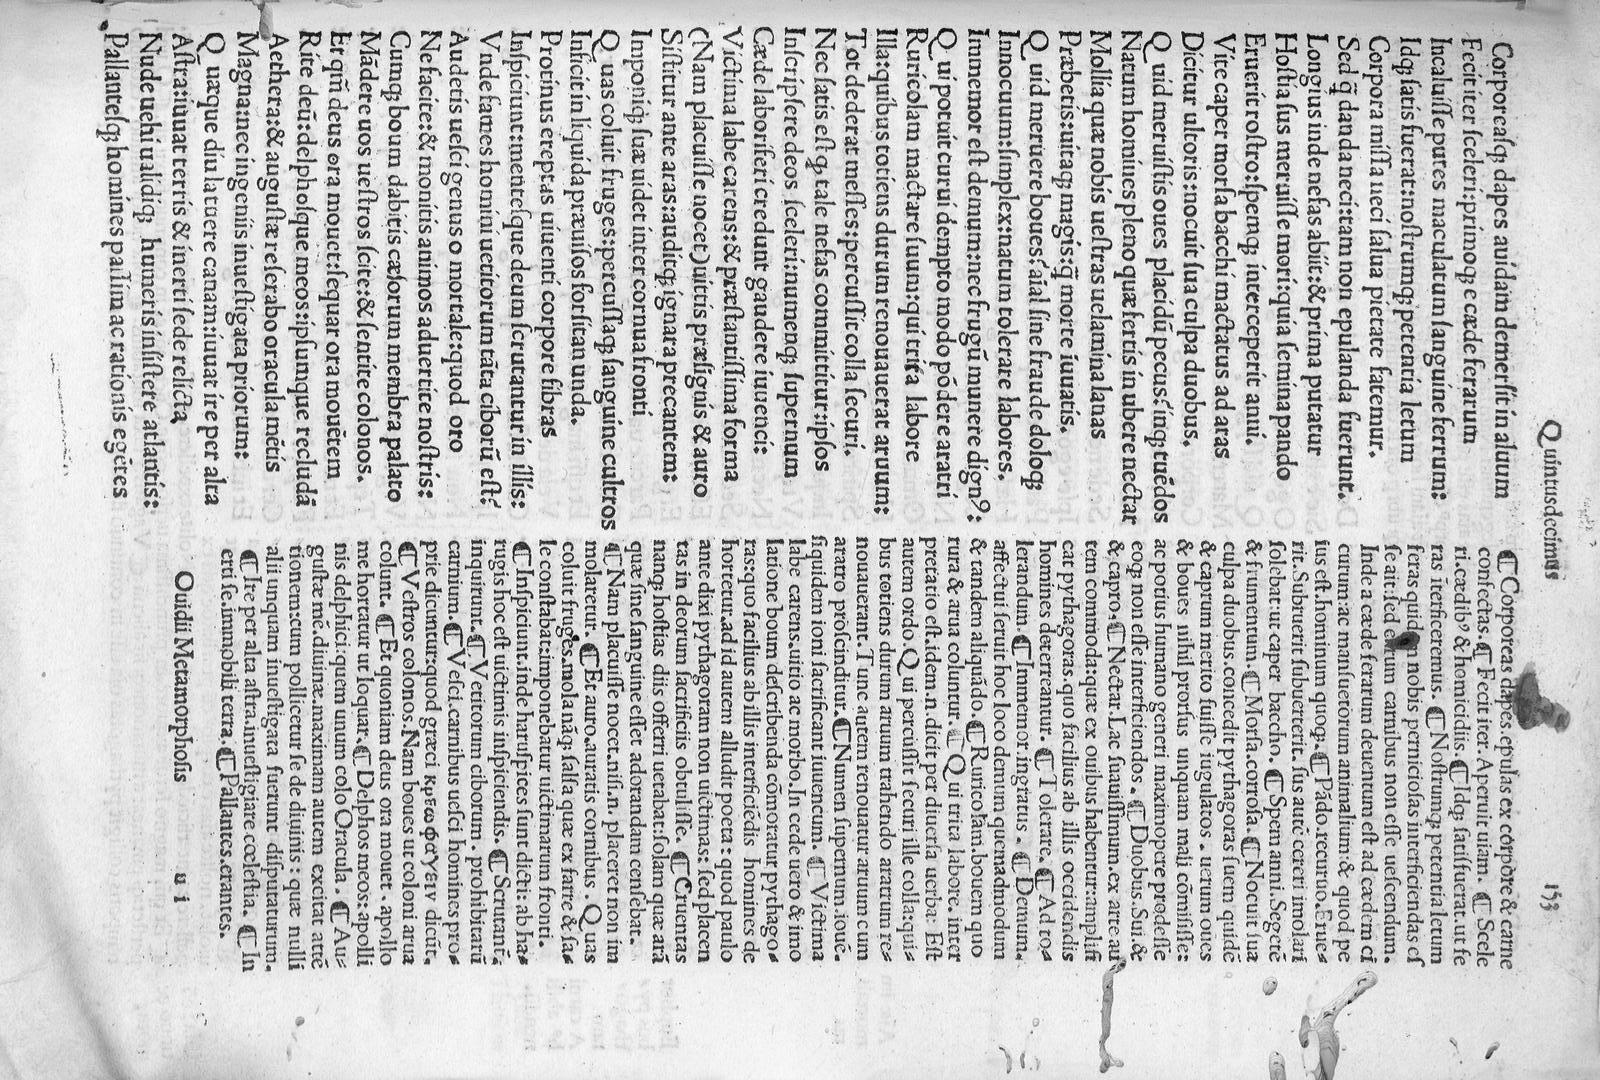 Quintusdecimus 153
Corporeasq; dapes auidam demersit in aluum
Fecit iter sceleri: primoq; e cæde ferarum
Incaluisse putes maculatum sanguine ferrum:
Idq; satis fuerat: nostrumq; petentia letum
Corpora missa neci salua pietate fatemur.
Sed q̄ danda neci: tam non epulanda fuerunt.
Longius inde nefas abiit: & prima putatur
Hostia sus meruisse mori: quia semina pando
Eruerit rostro: spemq; interceperit anni.
Vite caper morsa bacchi mactatus ad aras
Dicitur ultoris: nocuit sua culpa duobus.
Quid meruistis oues placidū pecus? inq; tuēdos
Natum homines pleno quæ fertis in ubere nectar
Mollia quæ nobis uestras uelamina lanas
Præbetis: uitaq; magis: q̄ morte iuuatis.
Quid meruere boues? aīal sine fraude doloq;
Innocuum: simplex: natum tolerare labores.
Immemor est demum: nec frugū munere dign⁹:
Qui potuit curui dempto modo pōdere aratri
Ruricolam mactare suum: qui trita labore
Illa: quibus totiens durum renouauerat aruum:
Tot dederat messes: percussit colla securi.
Nec satis est q, tale nefas committitur: ipsos
Inscripsere deos sceleri: numenq; supernum
Cæde laboriferi credunt gaudere iuuenci:
Victima labe carens: & præstantissima forma
(Nam placuisse nocet) uittis præsignis & auro
Sistitur ante aras: auditq; ignara precantem:
Imponiq; suæ uidet inter cornua fronti
Quas coluit fruges: percussaq; sanguine cultros
Inficit in liquida præuisos forsitan unda.
Protinus ereptas uiuenti corpore fibras
Inspiciunt: mentesque deum scrutantur in illis:
Vnde fames homini uetitorum tāta ciborū est?
Audetis uesci genus o mortale: quod oro
Ne facite: & monitis animos aduertite nostris:
Cumq; boum dabitis cæsorum membra palato
Mādere uos uestros scite: & sentite colonos.
Et qm̄ deus ora mouet: sequar ora mouētem
Rite deū: delphosque meos: ipsumque recludā
Aethera: & augustæ reserabo oracula mētis
Magna: nec ingeniis inuestigata priorum:
Quæque diu latuere canam: iuuat ire per alta
Astra: iuuat terris & inerti sede relicta
Nube uehi ualidiq; humeris insistere atlantis:
Pallantesq; homines passim ac rationis egētes
¶ Corporeas dapes. epulas ex corpore & carne
confectas. ¶ Fecit iter. Aperuit uiam. ¶ Scele
ri. cædib⁹ & homicidiis. ¶ Idq; satis fuerat. ut fe
ras īterficeremus. ¶ Nostrumq; petentia letum
feras quidem nobis perniciosas interficiendas es
se ait: sed earum carnibus non esse uescendum.
Inde a cæde ferarum deuentum est ad cædem ci
curum: ac mansuetorum animalium: & quod pe
ius est. hominum quoq;. ¶ Pādo. recuruo. Erue⸗
rit. Subruerit subuerterit. sus autē cereri imolari
solebat: ut caper baccho. ¶ Spem anni. Segetē
& frumentum ¶ Morsa. corrosa. ¶ Nocuit sua
culpa duobus. concedit pythagoras suem quidē
& caprum merito fuisse iugulatos. uetum oues
& boues nihil prorsus unquam mali cōmisisse:
ac potius humano generi maximopere prodesse
eoq; non esse interficiendos. ¶ Duobus. Sui. &
& capro. ¶ Nectar. Lac suauissimum. ex arte au
tem commoda: quæ ex ouibus habentur: amplifi
cat pythagoras. quo facilius ab illis occidendis
homines deterreantur. ¶ Tolerare. ¶ Ad to⸗
lerandum. ¶ Immemor. ingratus. ¶ Demum.
affectui seruit hoc loco demum quemadmodum
& tandem aliquādo. ¶ Ruricolam. bouem quo
rura & arua coluntur. ¶ Qui trita labore. inter
pretatio est. idem. n. dicit per diuersa uerba. Est
autem ordo. Qui percussit securi ille colla: qui⸗
bus totiens durum aruum trahendo aratrum re⸗
nouauerant. Tunc autem renouatur aruum cum
aratro proscinditur. ¶ Numen supernum. iouē.
siquidem ioni sacrificant iuuencum. ¶ Victima
labe carens. uitio ac morbo. In cede uero & imo
latione boum describenda cōmoratur pythago⸗
ras: quo facilius ab illis interficiēdis homines de
hortetur. ad id autem alludit poeta: quod paulo
ante dixi pythagoram non uictimas: sed placen
tas in deorum sacrificiis obtulisse. ¶ Cruentas
nanq; hostias diis offerri uetabat: solam quæ arā
quæ sine sanguine esset adorandam censebat.
¶ Nam placuisse nocet. nisi. n. placeret non im
molaretur. ¶ Et auro. auratis cornibus. Quas
coluit fruges. mola nāq; salsa quæ ex farre & sa⸗
le constabat: imponebatur uictimarum fronti.
¶ Inspiciunt. inde haruspices sunt dicti: ab ha⸗
rugis hoc est uictimis inspiciendis. ¶ Scrutant̄.
inquirunt. ¶ Vetitorum ciborum. prohibitarū
carnium ¶ Vesci. carnibus uesci homines pro⸗
prie dicuntur: quod græci κρεωφαγειν dicūt.
¶ Vestros colonos. Nam boues ut coloni arua
colunt. ¶ Et quoniam deus ora mouet. apollo
me hortatur ut loquar. ¶ Delphos meos: apolli
nis delphici: quem unum colo Oracula. ¶ Au⸗
gustæ mē. diuinæ. maximam autem excitat attē
tionem: cum pollicetur se de diuinis: quæ nulli
alii unquam inuestigata fuerunt disputaturum.
¶ Ire per alta astra. inuestigare cœlestia. ¶ In
erti se. immobili terra. ¶ Pallantes. errantes.
Ouidii Metamorphosis u i